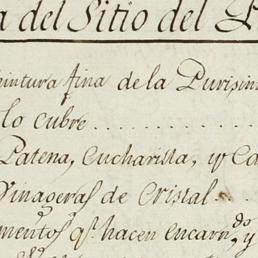 a del Sitio del P
pintura fina de la Purisim
lo cubre
Patena, Cucharilla, y Ca
Vinageras de Cristal
mentos q.e hacen encarn.do, y